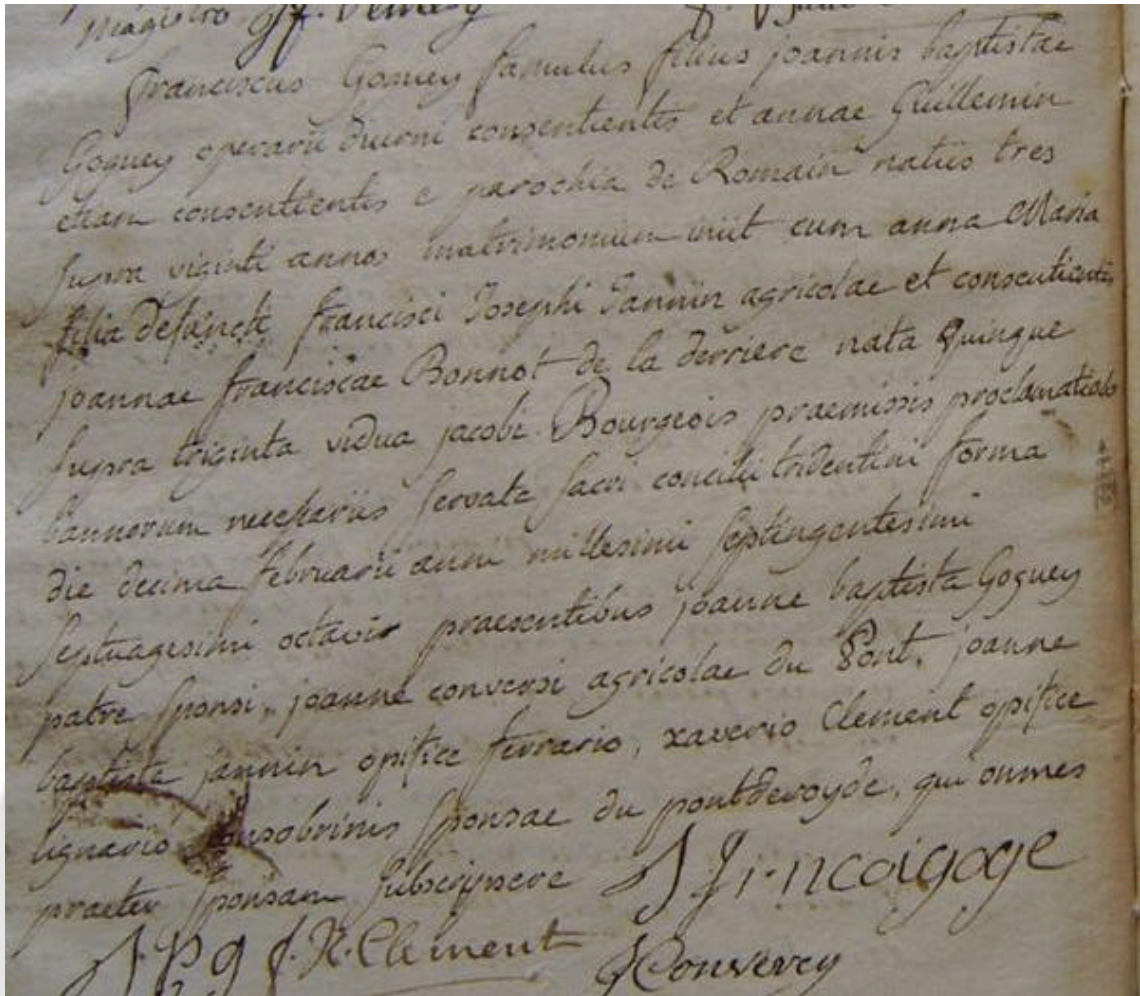 magistro
franciscus Goguey famulus filius joannis baptistae
Goguey operarii diurni consentientis et annae Guillemin
etiam consentientis e parochia de Romain natus tres
supra viginti annos matrimonium iniit cum anna Maria
filia defuncti francisci Josephi Jannin agricolae et consentientis
joannae franciscae Bonnot de la derriere nata quinque
supra triginta vidua jacobi Bourgeois praemissis proclamationibus
bannorum necessariis servata sacri concilii tridentini forma
die decima februarii anni millesimi septingentesimi
septuagesimi octavi praesentibus joanne baptista Goguey
patre sponsi, joanne conversi agricolae du Pont, joanne
baptista jannin opifice ferrario, xaverio Clement opifice
lignario consobrinis sponsae du pontdevoyde, qui omnes
praeter sponsam subscripsere francoigoge
J P g f. X. Clement J Convercy